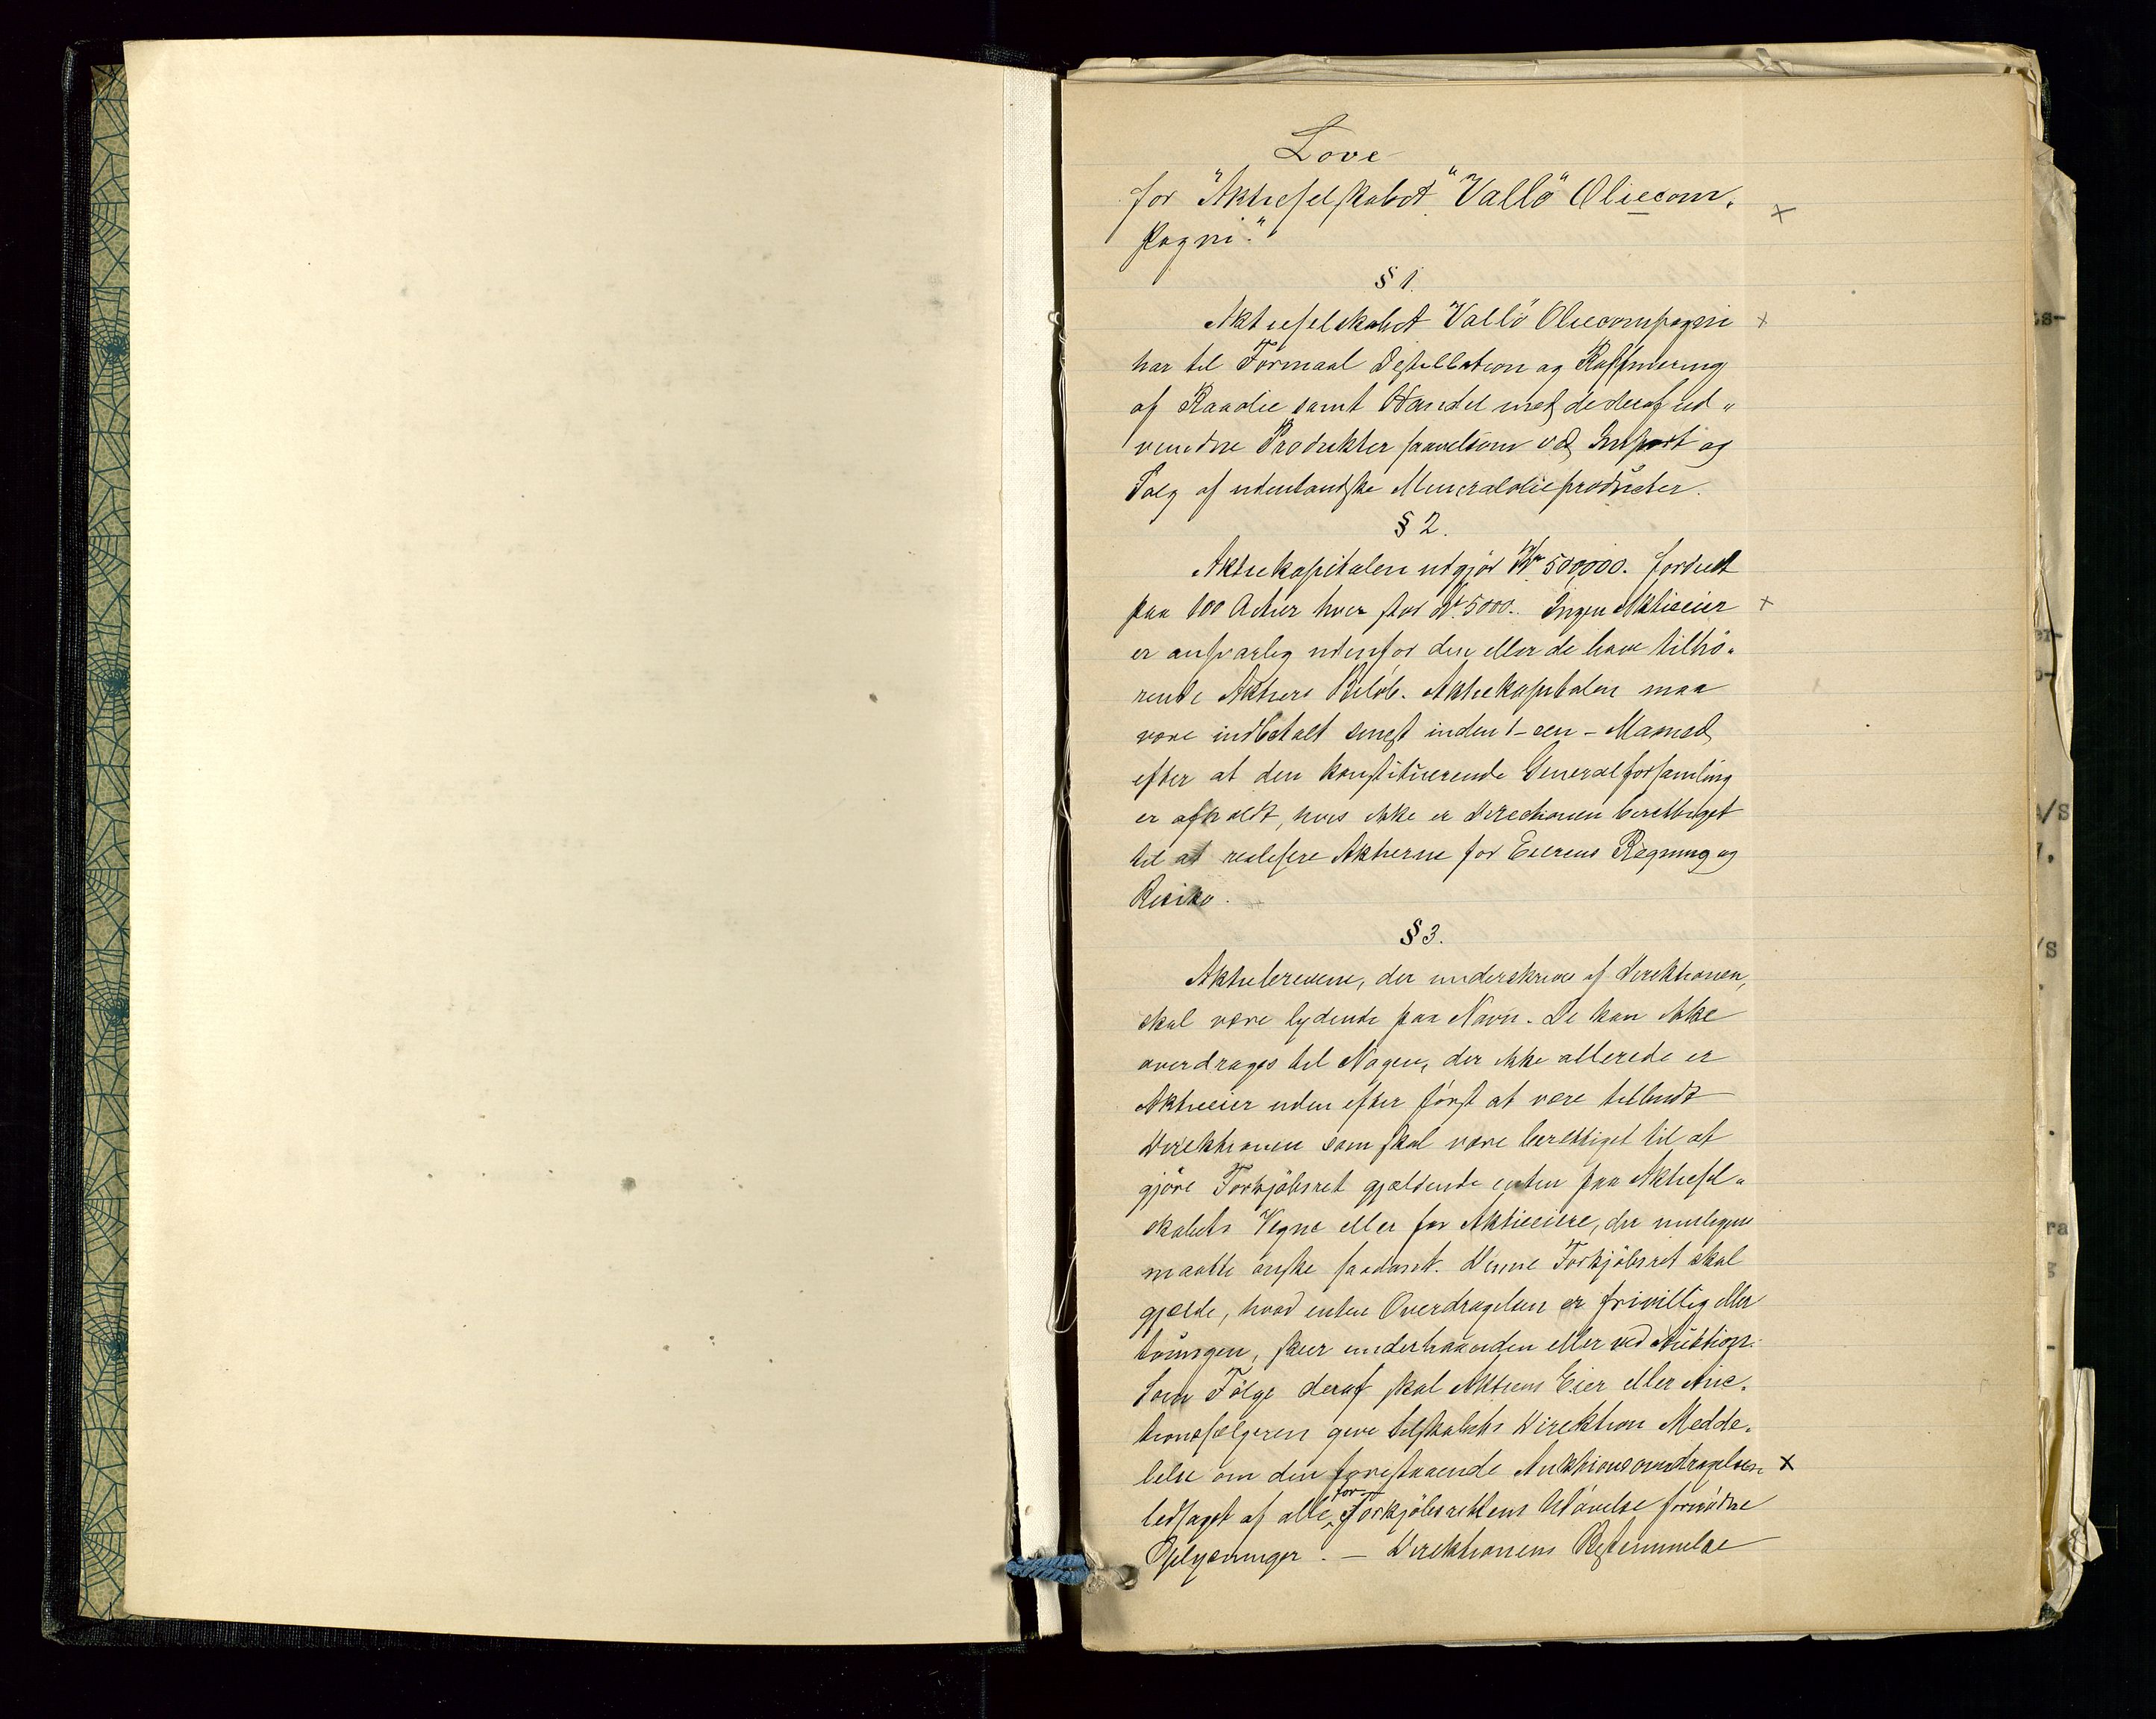 Love
for "Aktieselskabet "Vallö" Oliecom„
pagni."
§ 1.
Aktieselskabet Vallö Oliecompagni
har til Formaal Destillation og Raffinering
af Raaolie samt Handel med de deraf ud„
vundne Produkter saavelsom ved Import og
Salg af udenlandske Mineralolieproducter.
§ 2.
Aktiekapitalen udgjör Kr 500,000. fordelt
paa 100 Actier hver stor Kr. 5000. Ingen Aktieeier
er ansvarlig udenfor den eller de ham tilhö„
rende Aktiers Belöb. Aktiekapitalen maa
være indbetalt senest inden 1 - een - Maaned
efter at den konstituerende Generalforsamling
er afholdt, hvis ikke er Directionen berettiget
til at realisere Aktierne for Eierens Regning og
Risiko.
§ 3.
Aktiebrevene, der underskrives af Direktionen,
skal være lydende paa Navn. De kan ikke
overdrages til Nogen, der ikke allerede er
Aktieeier uden efter först at være tilbudt
Direktionen som skal være berettiget til at
gjöre Forkjöbsret gjældende enten paa Aktiesel„
skabets Vegne eller for Aktieeiere, der muligens
maatte önske saadant. Denne Forkjöbsret skal
gjælde, hvad enten Overdragelsen er frivillig eller
tvungen, sker underhaanden eller ved Auktion.
Som Fölge deraf skal Aktiens Eier eller Auc„
tionssælgeren give Selskabets Direktion Medde„
lelse om den forestaaende Auktionsoverdragelsen
for
ledsaget af alle Forkjöbsrettens Udövelse fornödne
Oplysninger. — Direktionens Bestemmelse
ts-
A/S
/S
ra